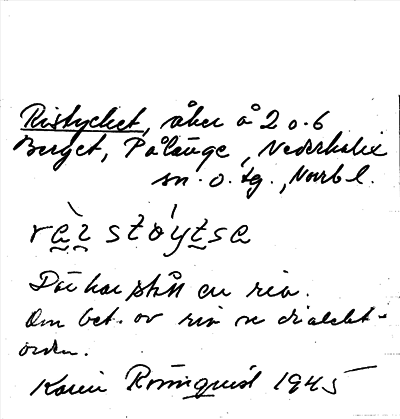 Ristycket, åker å 2 o. 6
Berget, Pålänge, Nederkalix
sn. o. tg., Norrb l.
Där har stått en ria.
Om bet. av ria se dialekt-
orden.
Karin Rönnquist 1945